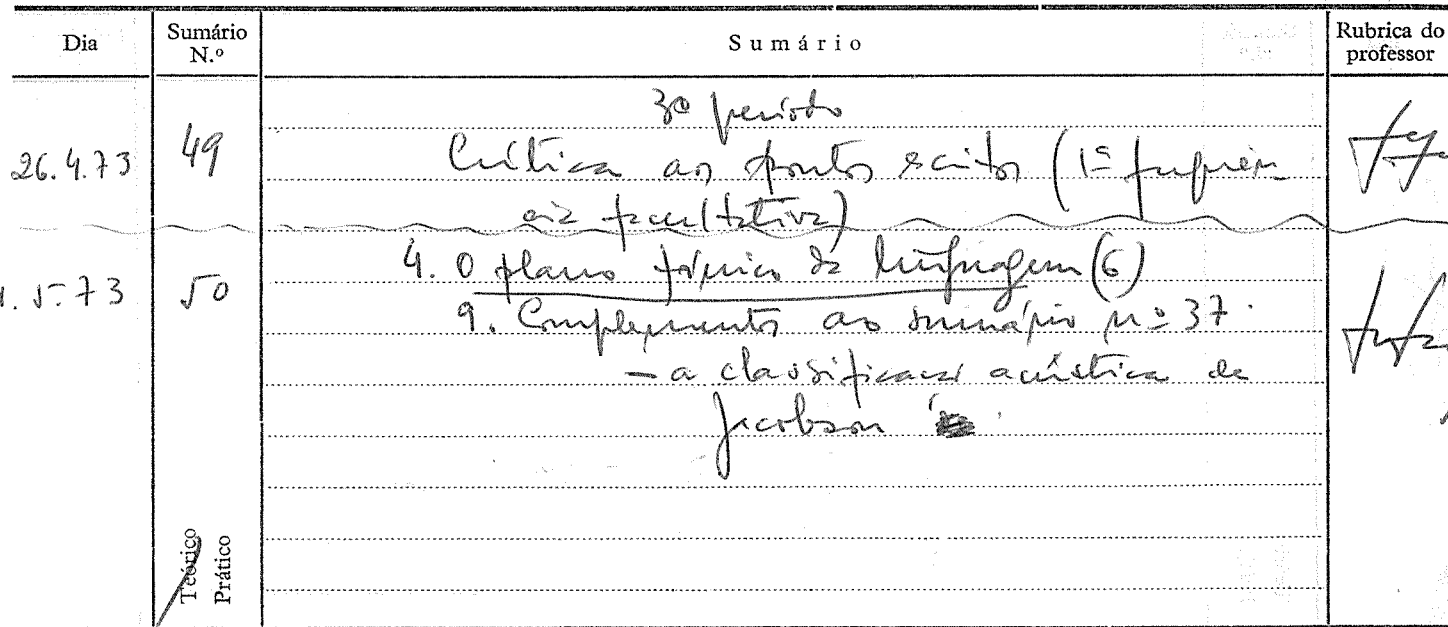 Dia Sumário N.º Sumário Rubrica do professor
3º período
26.4.73 49 Crítica aos pontos escritos (1ª frequên
cia facultativa)
4. O plano fónico da linguagem (6)
1.5.73 50 9. Complemento ao sumário nº 37.
— a classificação acústica de
Jacobson
Teórico
Prático